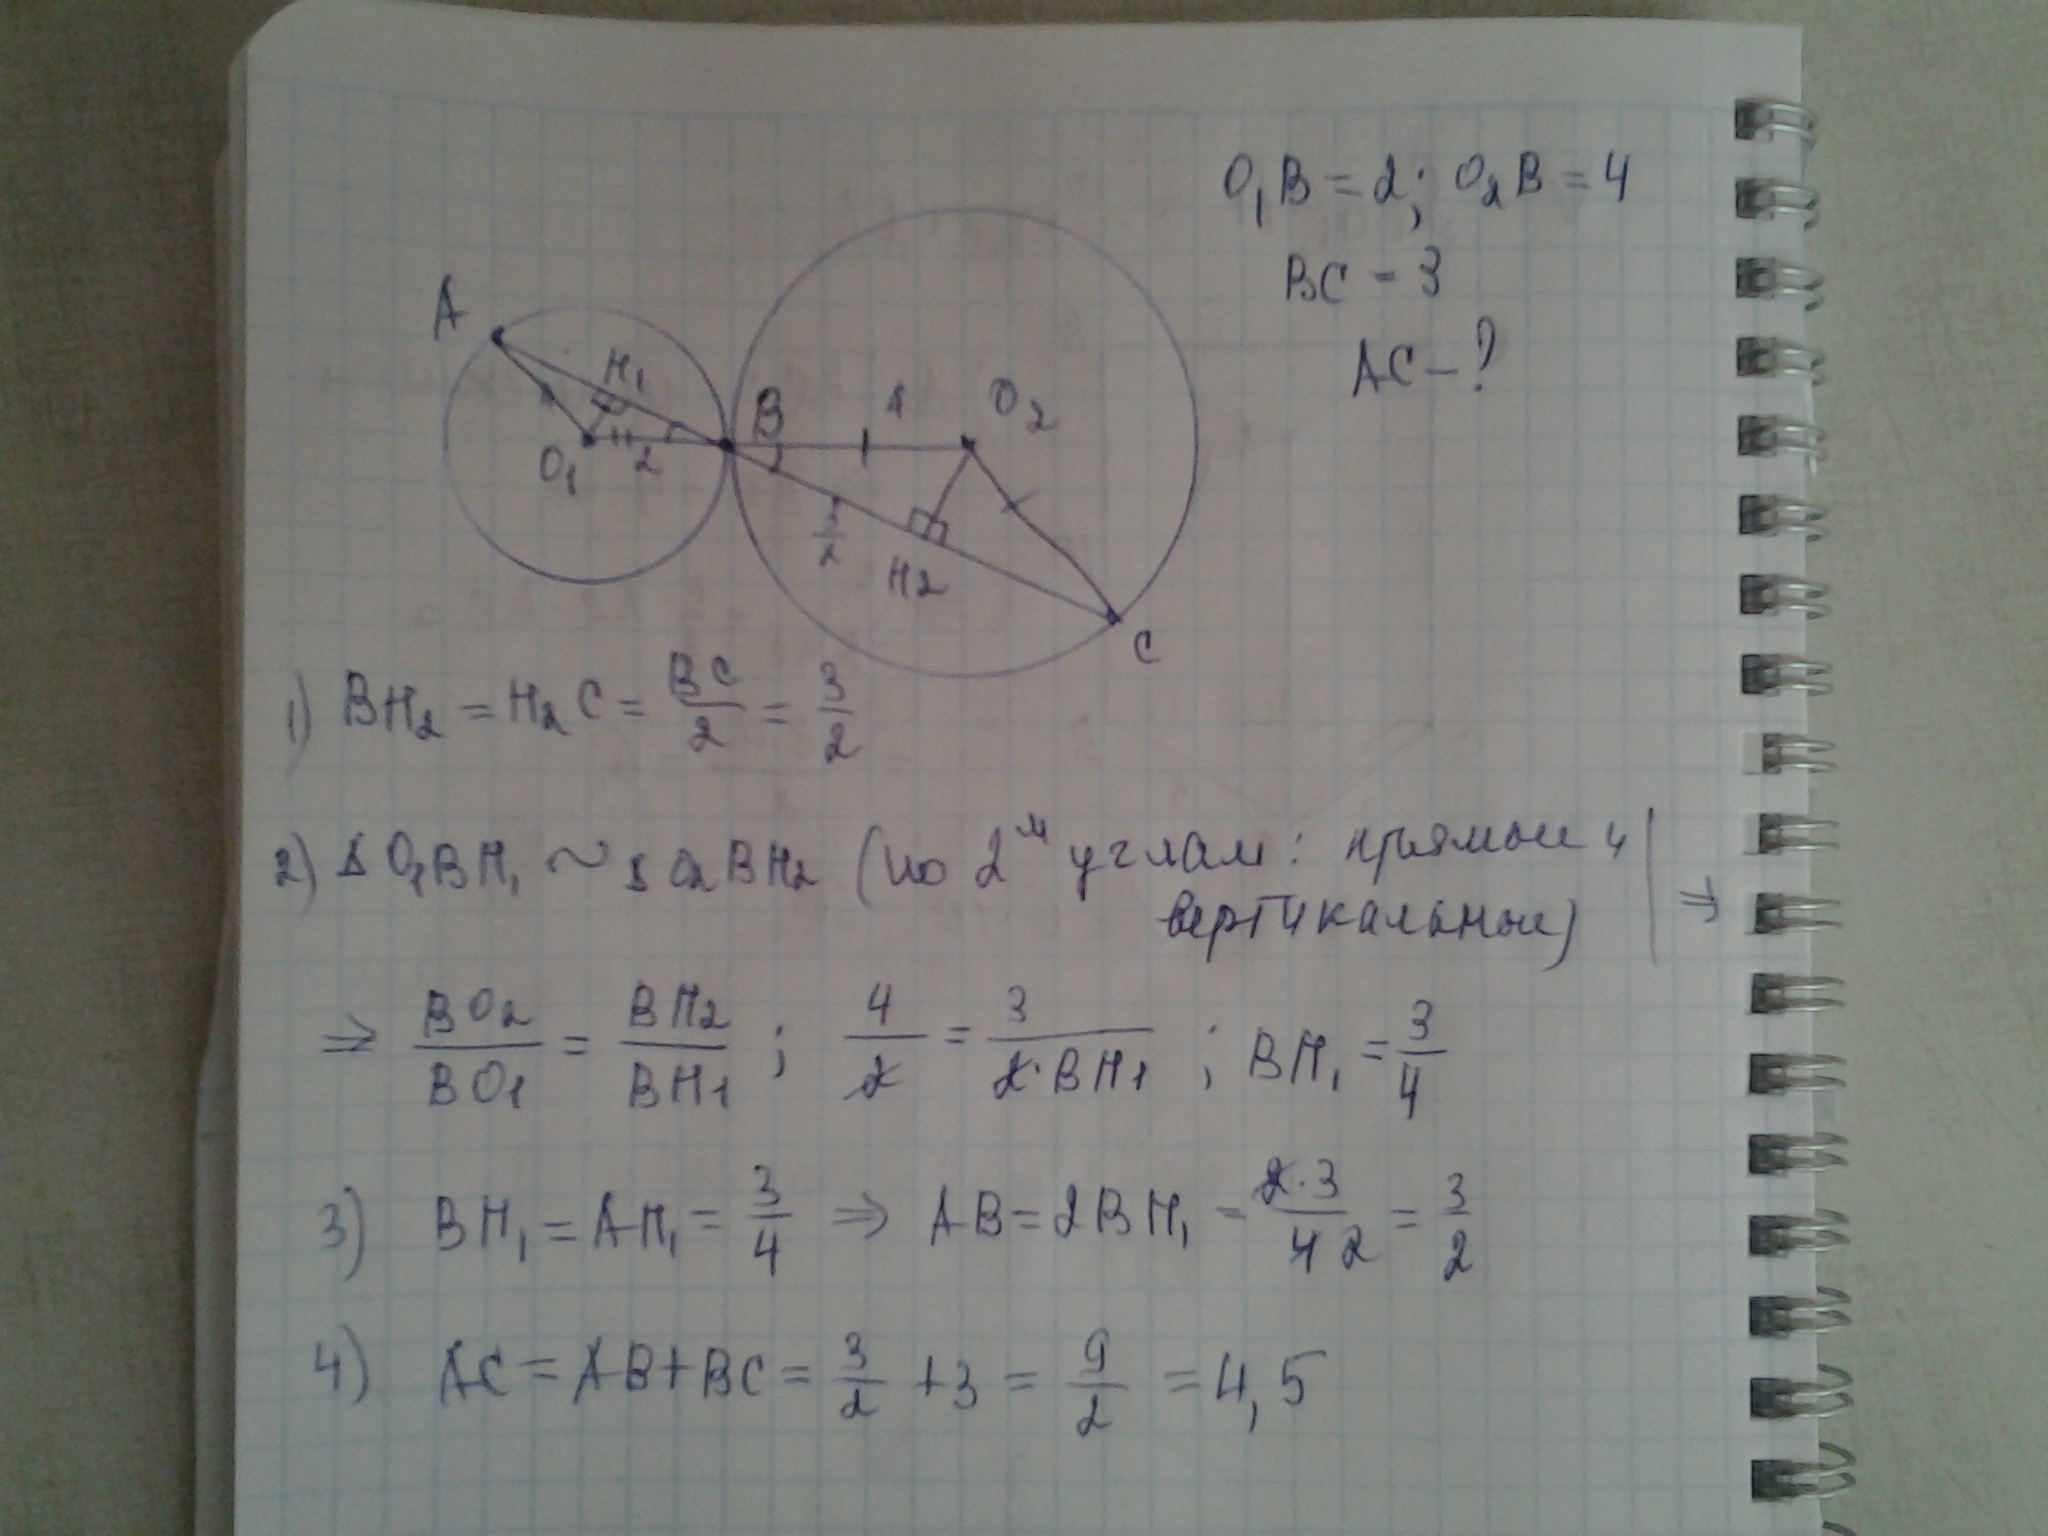 O₁B = 2; O₂B = 4
BC - 3
AC - ?
A
H₁
B
4
O₂
O₁
2
3/2
H2
C
1) BH₂ = H₂C = BC/2 = 3/2
2) Δ O₁BH₁ ~ Δ O₂BH₂ (по 2ᵐ углам: прямой и
вертикальной) | ⇒
⇒ BO₂/BO₁ = BH₂/BH₁ ; 4/2 = 3/(2·BH₁) ; BH₁ = 3/4
3) BH₁ = AH₁ = 3/4 ⇒ AB = 2BH₁ - 2·3/4 2 = 3/2
4) AC = AB + BC = 3/2 + 3 = 9/2 = 4,5